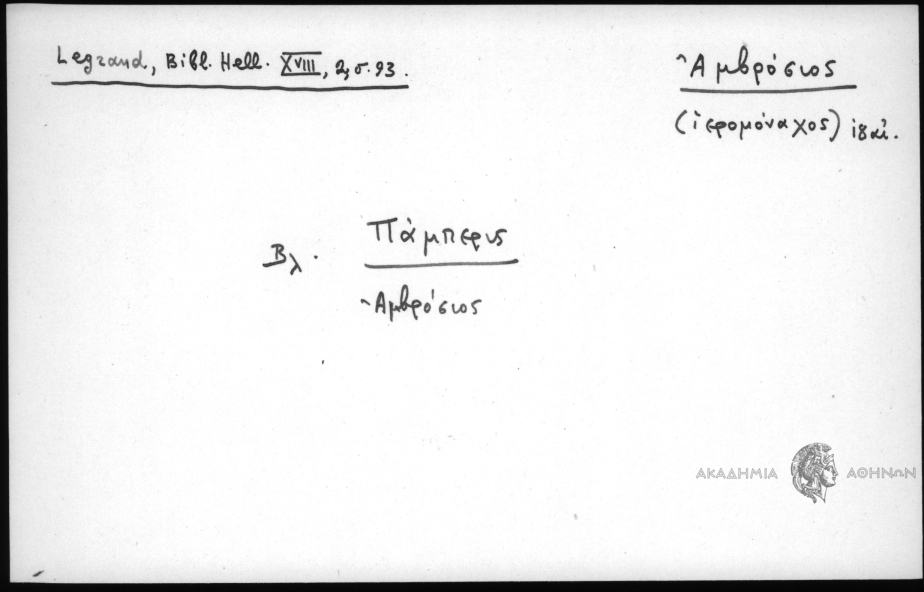 Legrand, Bibl. Hell. XVIII, 2, σ. 93.
Ἀμβρόσιος
(ἱερομόναχος) ιη αἰ.
Βλ. Πάμπερις
Ἀμβρόσιος
ΑΚΑΔΗΜΙΑ ΑΘΗΝΩΝ